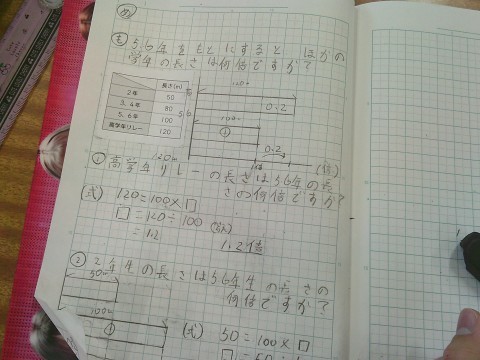 め
も 5,6年をもとにすると ほかの
学年の長さは何倍ですか?
長さ(m)
2年 50
3、4年 80
5、6年 100
高学年リレー 120
120m
0.2
①
0.2
(倍)
① 高学年リレーの長さは5,6年の長
さの何倍ですか?
120m
(式) 120=100×□
□=120÷100
=1.2
(答え)
1.2倍
② 2年生の長さは5,6年生の長さの
何倍ですか?
50m
100m
①
(式) 50=100×□